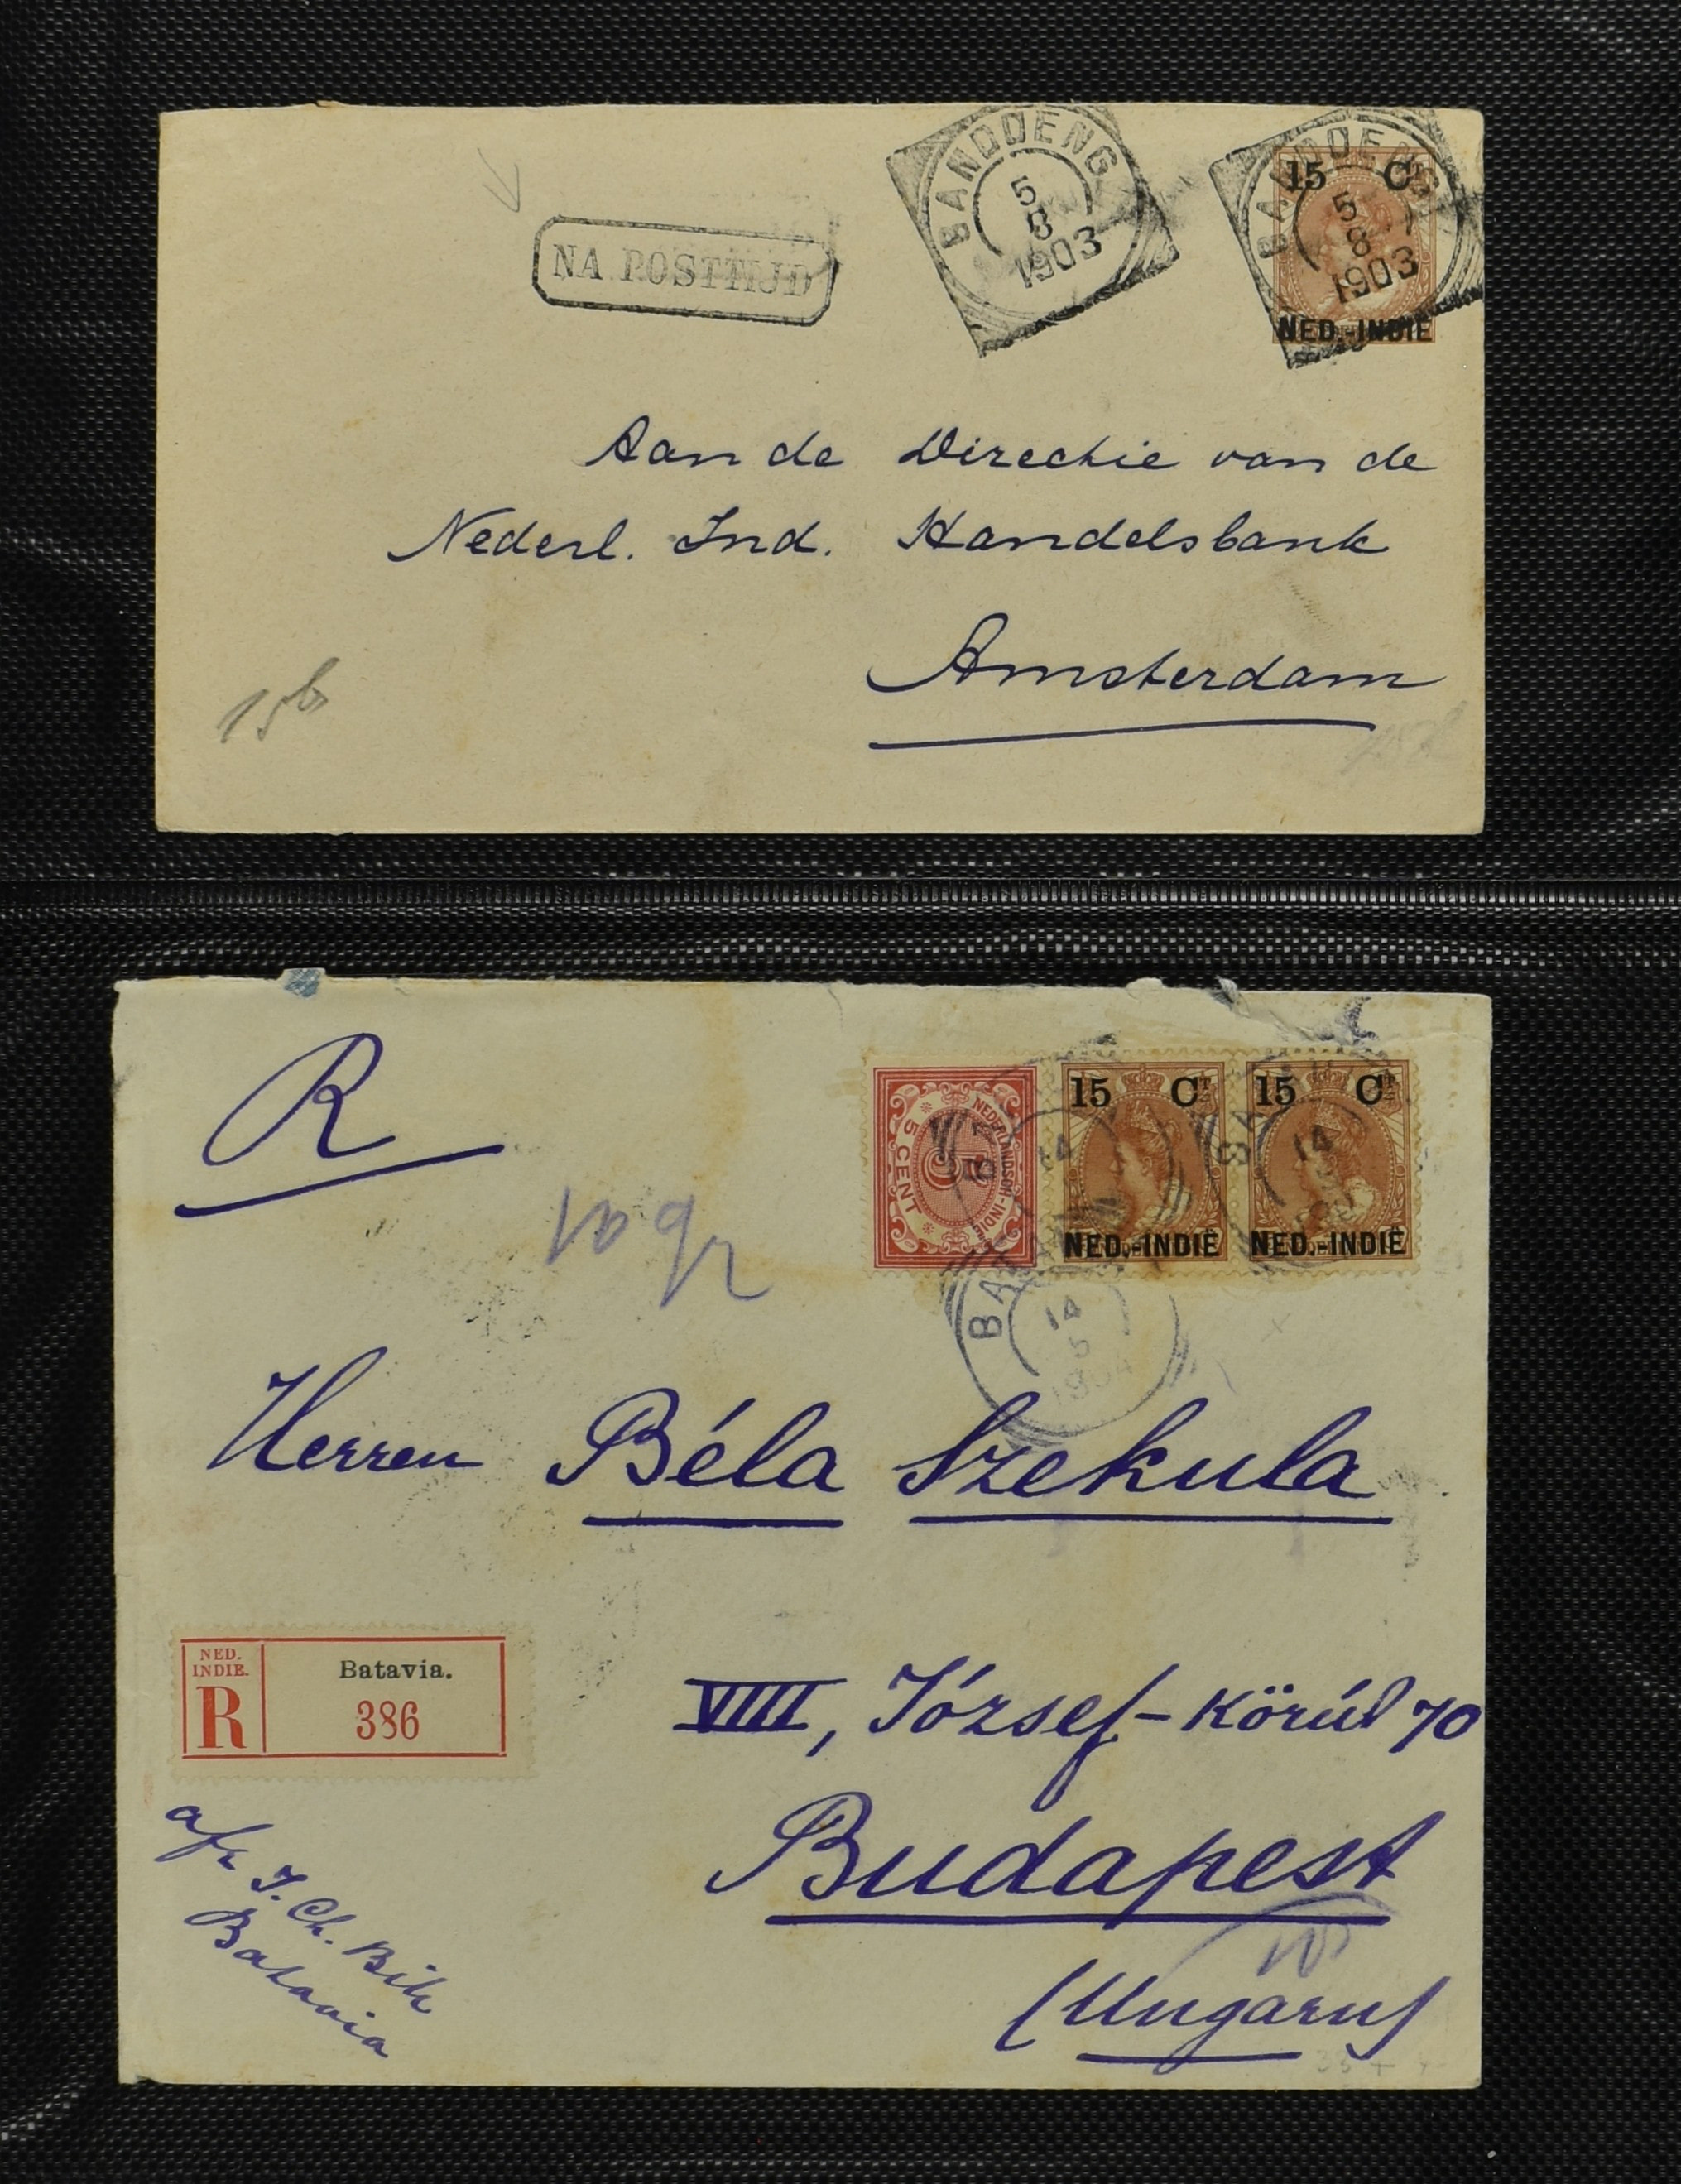 NA POSTTIJD
BANDOENG
5
8
1903
BANDOENG
5
8
1903
15 CT
NED.-INDIË
Aan de Directie van de
Nederl. Ind. Handelsbank
Amsterdam
R
NEDERLANDSCH-INDIË
5
5 CENT
15 CT
NED.-INDIË
15 CT
NED.-INDIË
14
14
14
5
1904
Herren Béla Szekula
NED.
INDIE.
R
Batavia.
386
VIII, József-Körúl 70
Budapest
(Ungarn)
J. Ch. Bik
Batavia